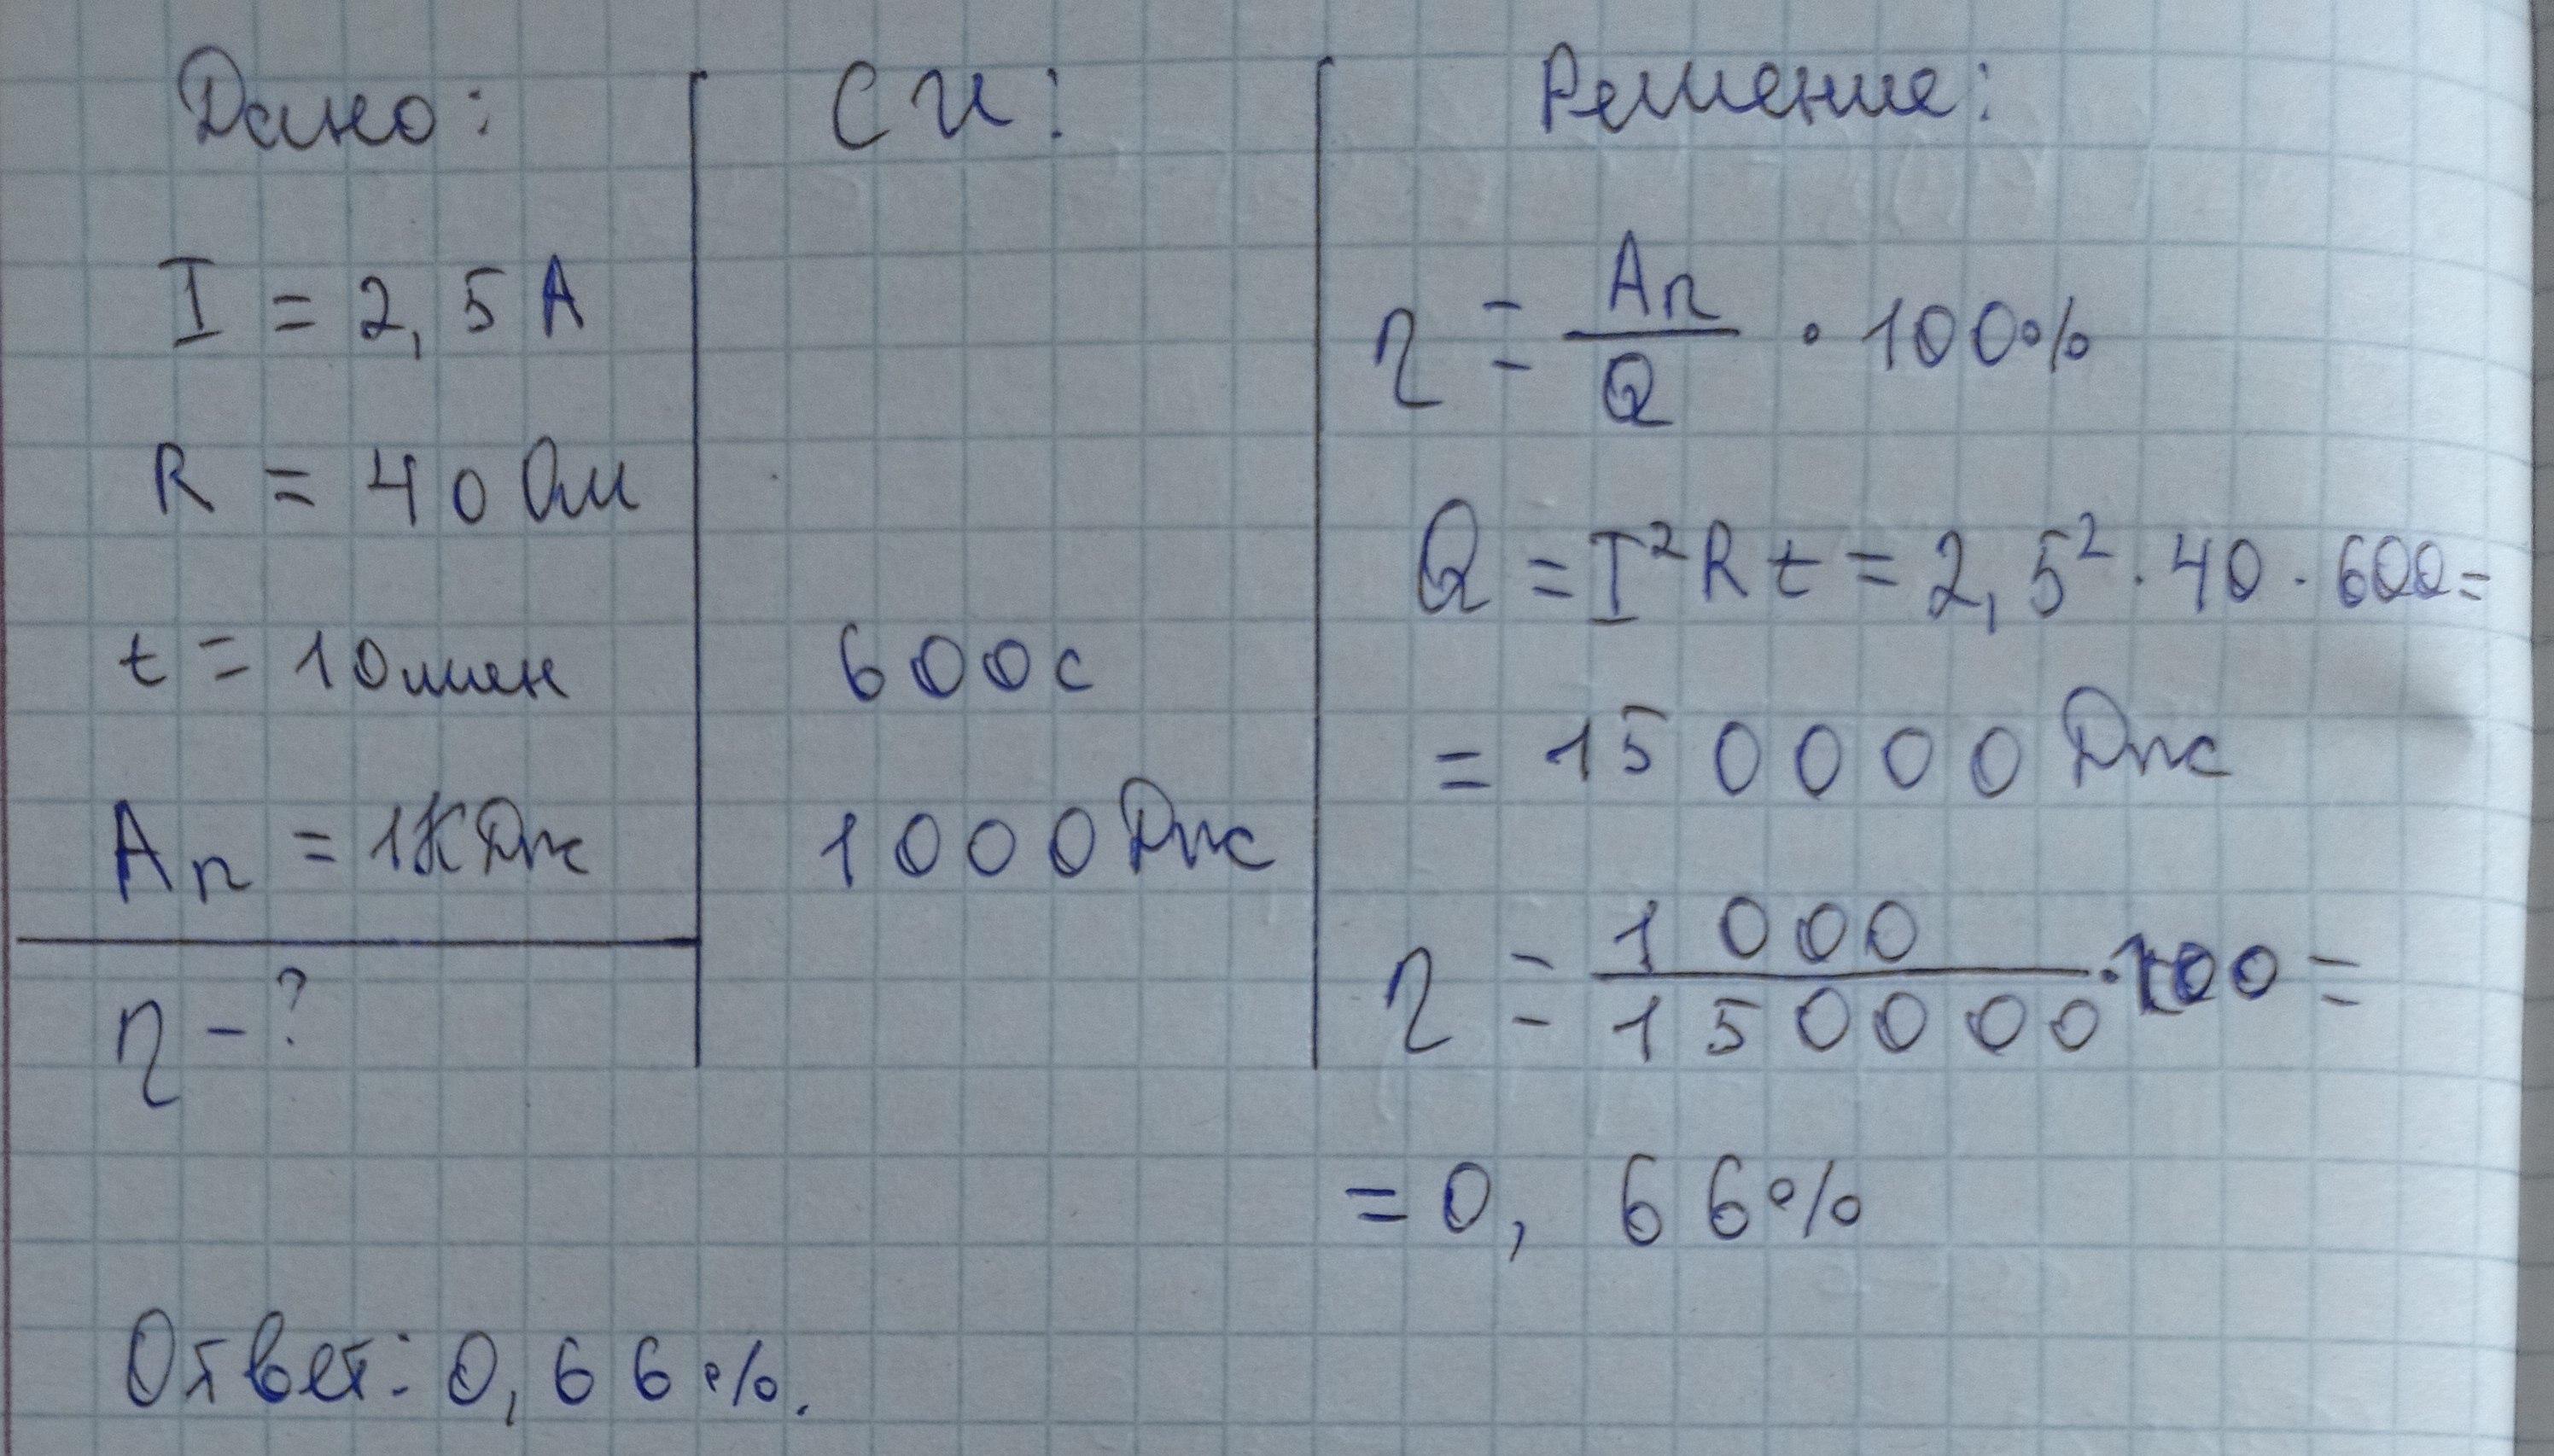 Дано:
I = 2,5 А
R = 40 Ом
t = 10 мин
Aп = 1 КДж
η - ?
СИ:
600 с
1000 Дж
Решение:
η = Aп/Q · 100%
Q = I²Rt = 2,5² · 40 · 600 =
= 150000 Дж
η = 1000/150000 · 100 =
= 0,66%
Ответ: 0,66%.